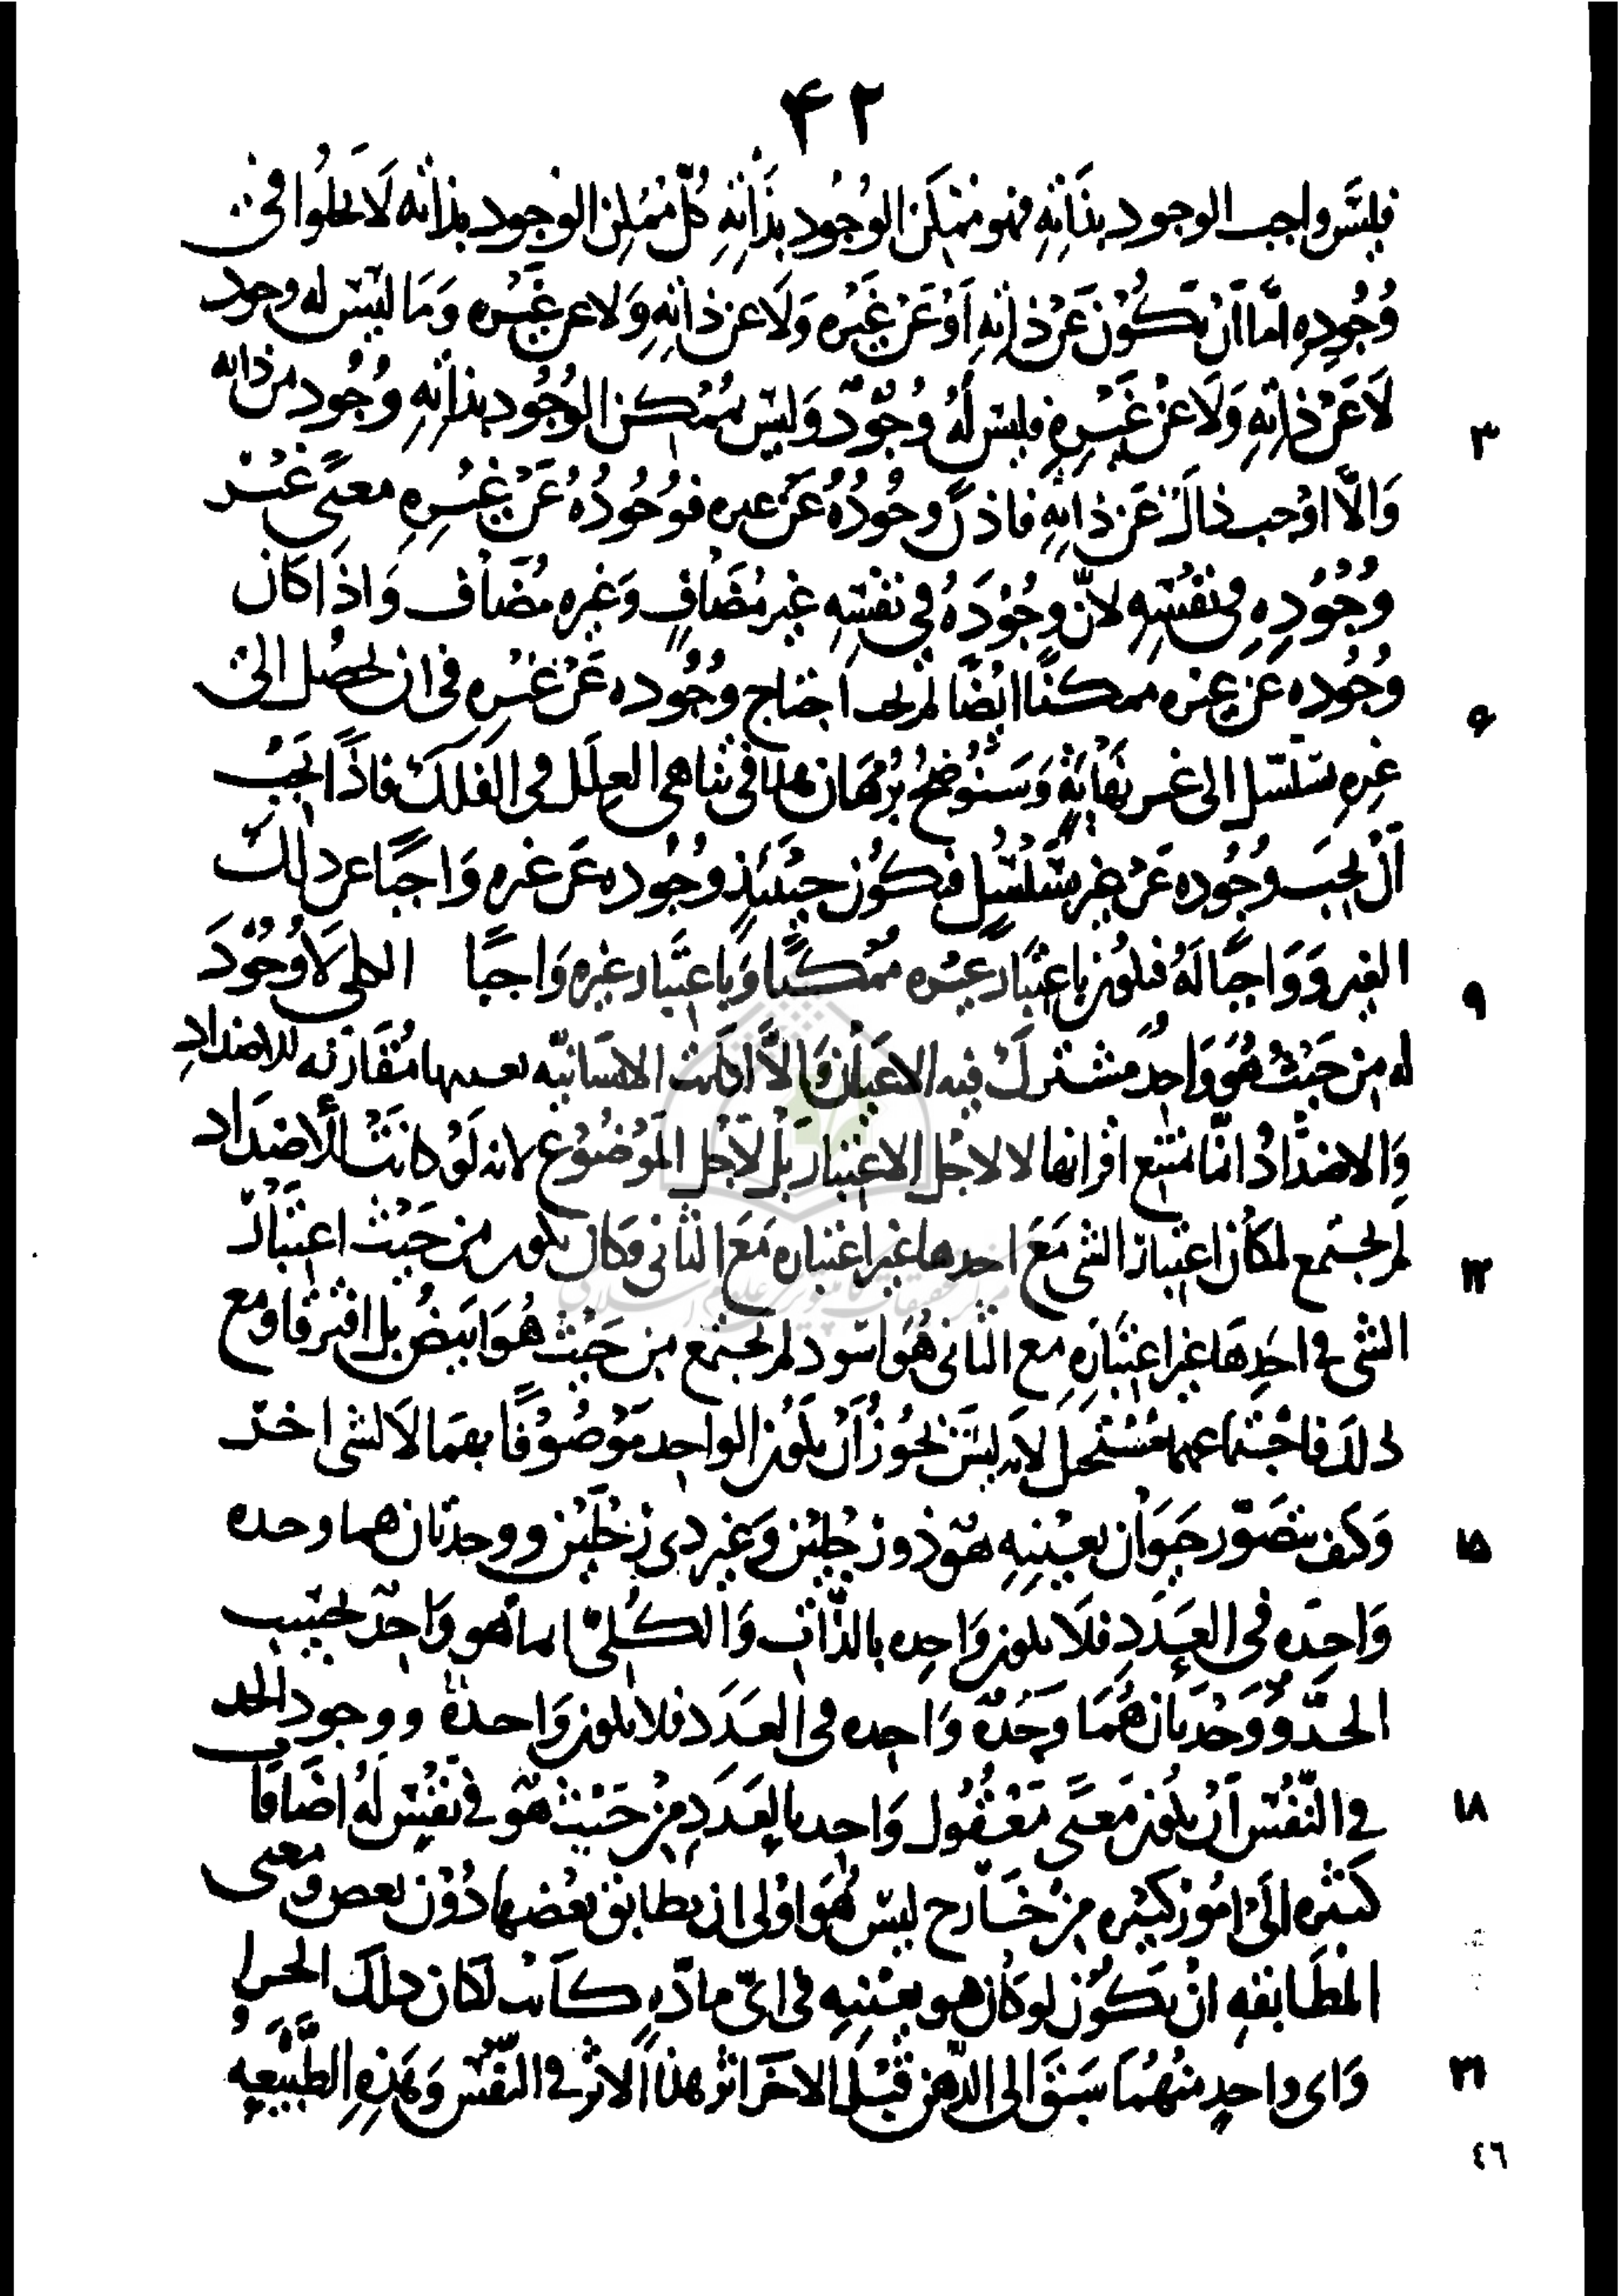 ۴۲
فليس واجب الوجود بذاته فهو ممكن الوجود بذاته كلّ ممكن الوجود بذاته لا يخلوا في
وُجُودِهِ امّا ان تكون عَنْ ذاتِهِ أوْ عَنْ غَيْره وَلَا عن ذاتِهِ وَلا عن غَيره وَمَا ليس له وجود
لَا عَنْ ذاتِهِ وَلَا عَنْ غَيْرِهِ فليس لَهُ وُجُودٌ وَليس ممكن الوُجُود بذاتِهِ وُجُود من ذاته
۳
وَالّا اوجب ذالك عَن ذاتِهِ فاذنْ وجُودُهُ عَنْ غيره فوُجُودُهُ عَنْ غَيْرِهِ معنًى غَيْر
وُجُودِهِ فى نفْسِهِ لانّ وجُوْدَهُ فى نفسِهِ غير مُضَافٍ وَغيره مُضاف وَاذَا كان
وُجُوده عَن غيره ممكنًا ايْضًا لم يجد احتاج وُجُوده عَنْ غَيْرِهِ فى ان يحصُل الى
۶
غيرِهِ يتسلسل الى غير نهَايَةٍ وَسَنُوضحُ بُرهَان هذا فى تناهى العِلَل فى الفلك فاذًا يَجِبُ
اَنْ يجبَ وُجُوده عَنْ غيرٍ يتسَلْسَل فيكُون حِيْنَئذٍ وُجُوده عَن غيره وَاجبًا عن ذلك
الغير وَوَاجبًا لَهُ فيكون باعتبَار غيره ممكنًا وَباعتبَار غيره وَاجبًا الكلى لَا وُجُودَ
۹
له من حَيْثُ هُوَ وَاحِدٌ مشتركٌ فيه الاعيان وَالّا لكانت الانسانيّه بعينها مُقارنه للاضدادِ
وَالاضدَادُ انّما يمتنع اقرانها لا لاجْل الاعتبار بَلْ لاجْل المَوْضُوْع لانه لَوْ كانت الأضدَاد
لم يجتمع لمكَان اعتبار الشى مَعَ احدها غير اعتباره مَعَ الثانى وكان يكون من حَيْث اعتبَار
۱۲
الشى فى احَدِهَا غير اعتبَارِهِ مع الثانى هُوَ اسود لم يجتمع من حَيْث هُوَ ابيَضُ بل افترقا ومع
ذالك فاجْتماعهما مُسْتحيل لانه ليسَ يجُوزُ اَنْ يكون الواحِد مَوْصُوْفًا بهمَا لَا لشى اخَر
وَكيف يتصَوّر حَيَوان بعَينِهِ هُوَ ذو رِجْلين وَغير ذى رِجْلين ووحدتان هما وحده
۱۵
وَاحِده فى العَدَدِ فلَا يكون وَاحِده بالذّات وَالكُلىّ انما هو وَاحِدٌ بحسب
الحَدّ وَوَحْدتان هُمَا وَحْدَة وَاحِده فى العَدَد فلا يكون وَاحدة ووجود الحد
فى النّفْس اَنْ يكون مَعنًى مَعْقُول وَاحِد بالعَدَدِ مِنْ حَيْث هُوَ فى نَفْسٍ لَهُ اضَافَات
۱۸
كثيره الَى امُوْر كثيره مِنْ خَارج ليس هُوَ اوْلى ان يطابق بعْضها دُوْن بعض ومعنى
المطَابقه انْ يكُوْن لو كَان هو بعيْنِهِ فى اىّ مادّهٍ كانت لكان ذلك الجز
وَاى واحدٍ منهُمَا سَبَقَ الى الذهن قبْلَ الاخَر اثر هذا الاثر فى النّفْس وَهَذِهِ الطَّبِيْعه
۲۱
٤٦
مرکز تحقیقات کامپیوتری علوم اسلامی